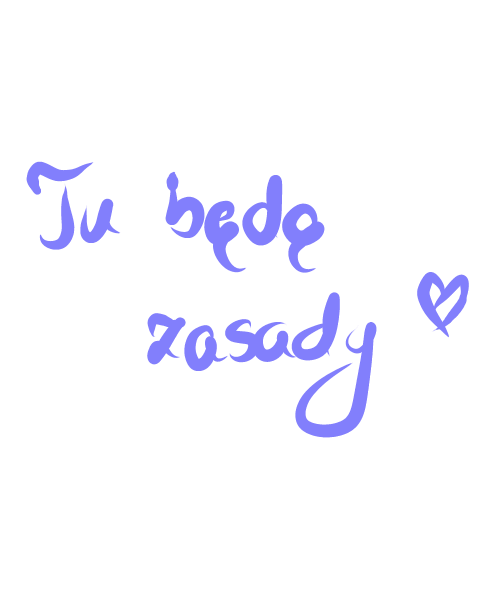 Tu będą
zasady